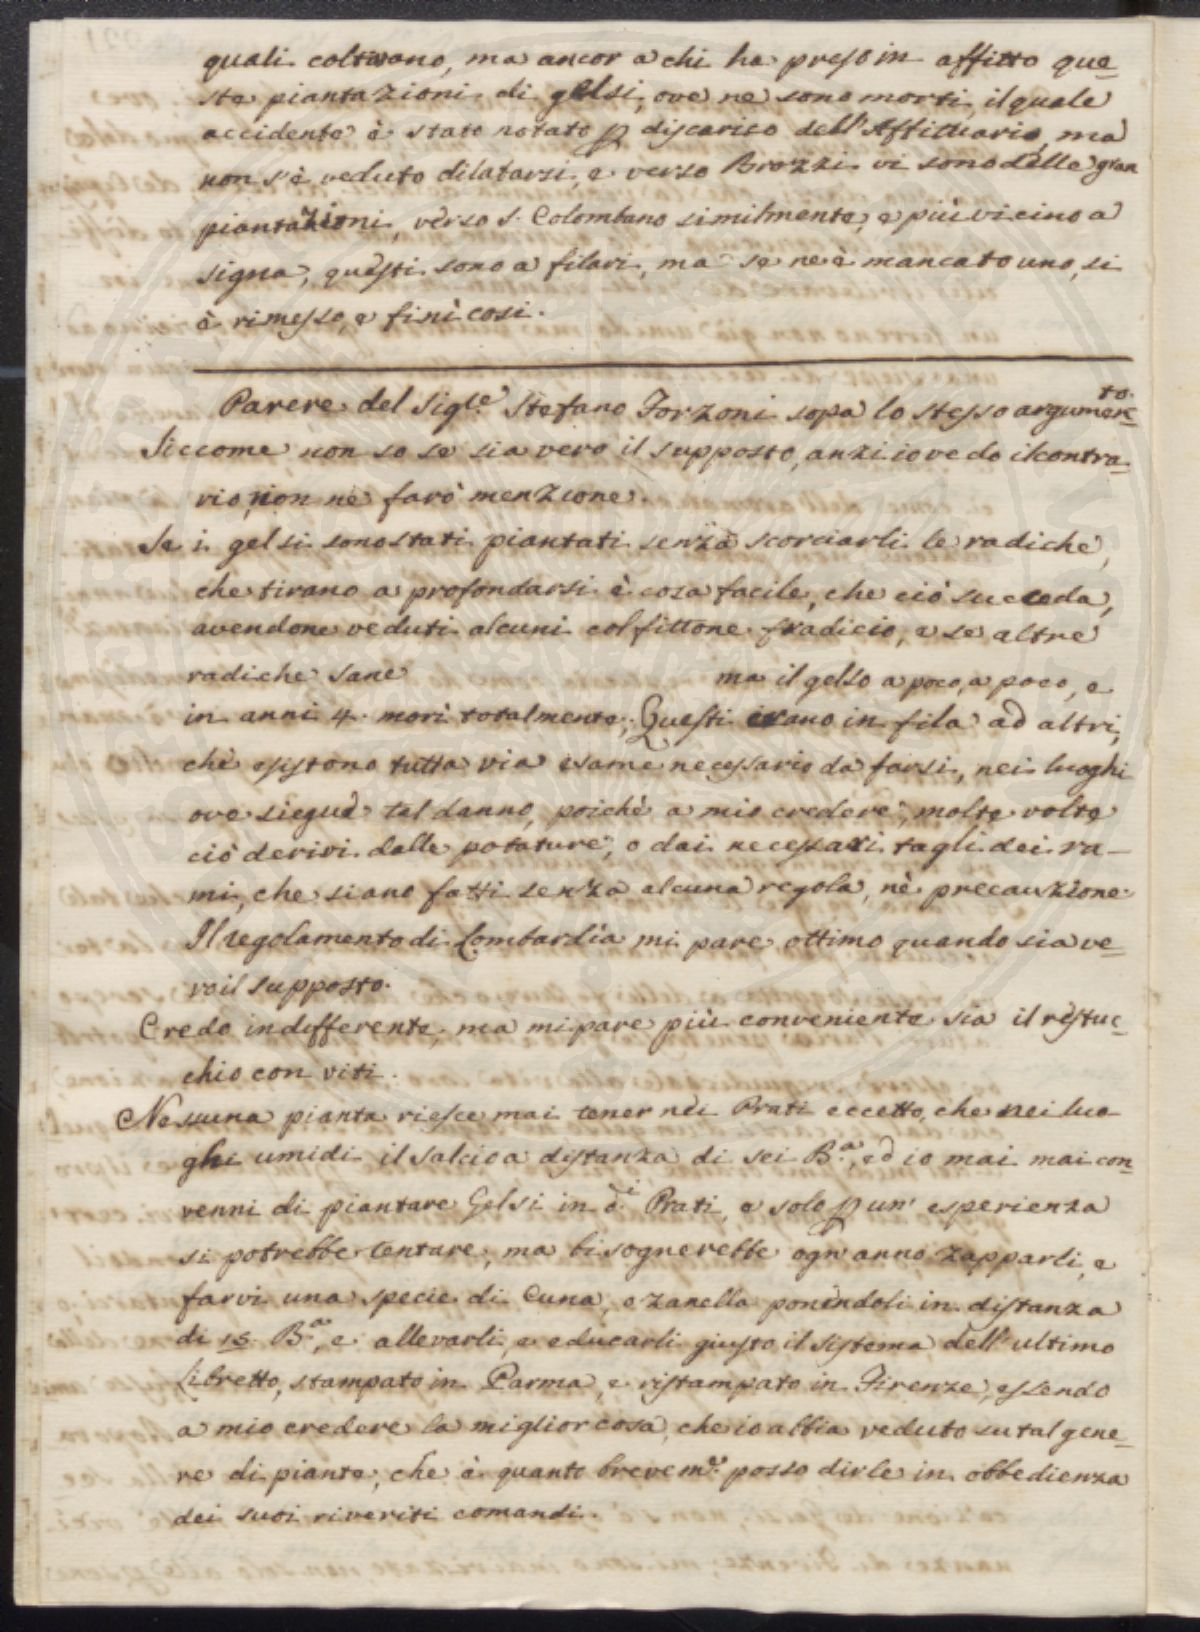 quali coltivano, ma ancor a chi ha preso in affitto que-
ste piantazioni di gelsi, ove ne sono morti, il quale
accidente è stato notato p discarico dell'Affittuario, ma
non s'è veduto dilatarsi, e verso Brozzi vi sono delle gran
piantazioni, verso S. Colombano similmente, e più vicino a
Signa, questi sono a filari, ma se ne è mancato uno, si
è rimesso, e finì così.
Parere del Sigle. Stefano Forzoni sopa lo stesso argumen-to.
Siccome non so se sia vero il supposto, anzi io vedo il contra-
rio, non ne farò menzione.
Se i gelsi sono stati piantati senza scorciarli le radiche,
che tirano a profondarsi è cosa facile, che ciò succeda,
avendone veduti alcuni col fittone fradicio, e se altre
radiche sane ma il gelso a poco, a poco, e
in anni 4. morì totalmente; Questi erano in fila ad altri,
che esistono tutta via esame necessario da farsi, nei luoghi
ove siegue tal danno, poichè a mio credere, molte volte
ciò derivi dalle potature, o dai necessari tagli dei ra-
mi, che siano fatti senza alcuna regola, nè precauzione.
Il regolamento di Lombardia mi pare ottimo quando sia ve-
ro il supposto.
Credo indifferente, ma mi pare più conveniente sia il ristuc-
chio con viti.
Nessuna pianta riesce mai tener nei Prati eccetto, che nei luo
ghi umidi il salcio a distanza di sei B.a, ed io mai mai con-
venni di piantare Gelsi in d.i Prati, e solo p un' esperienza
si potrebbe tentare, ma bisognerebbe ogn'anno zapparli, e
farvi una specie di Cuna, o zanella ponendoli in distanza
di 15. B.a, e allevarli, e educarli giusto il sistema dell'ultimo
Libretto, stampato in Parma, e ristampato in Firenze, essendo
a mio credere la miglior cosa, che io abbia veduto su tal gene-
re di piante, che è quanto brevem.e posso dirle in obbedienza
dei suoi riveriti comandi.